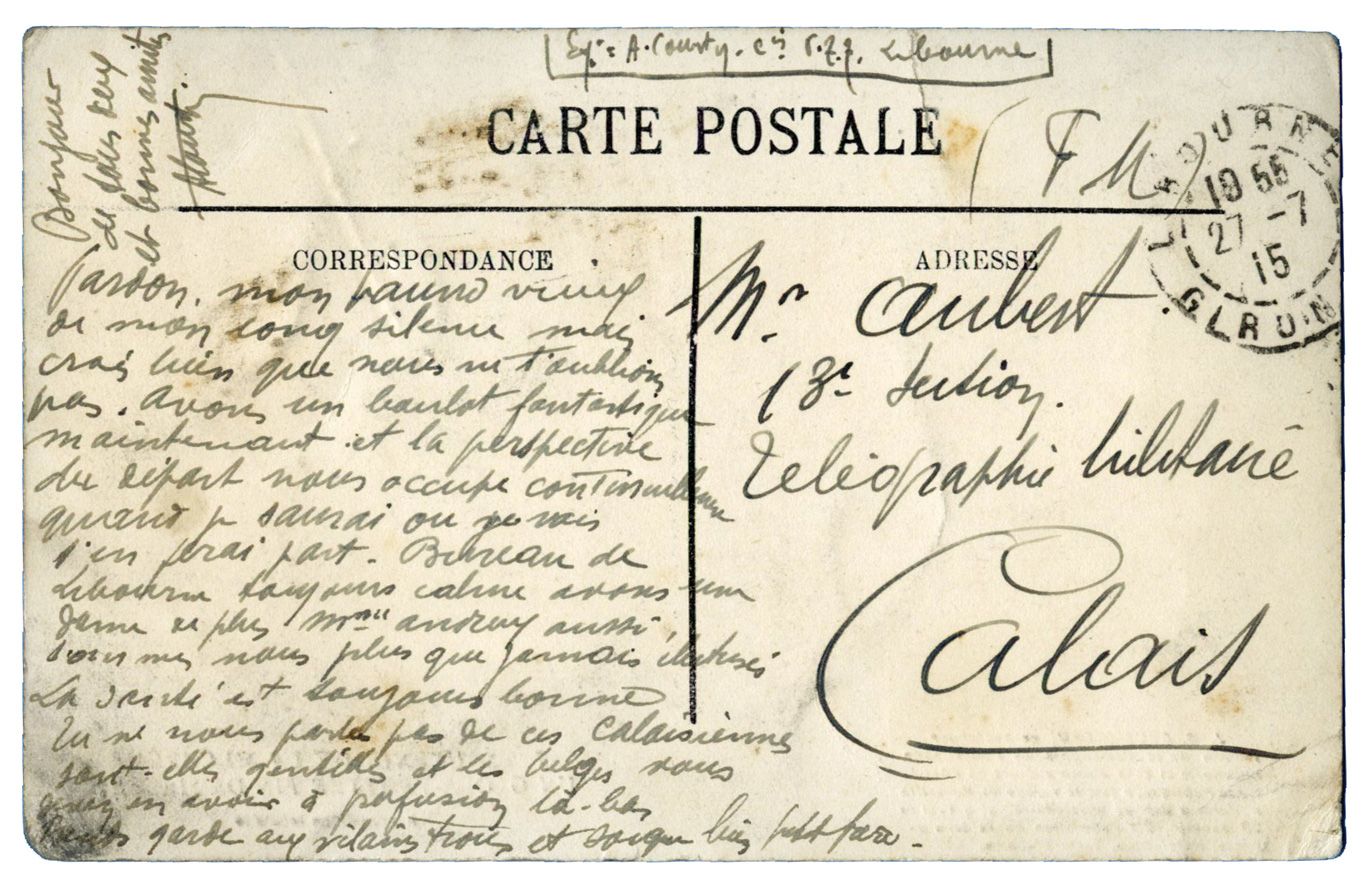 Expr = A. Courty. Cis P.T.T. Libourne
CARTE POSTALE
(F M)
LIBOURNE
10 55
27 - 7
15
GIRONDE
Bonjour
de tous ceux
et bonnes amitiés
CORRESPONDANCE
Pardon, mon pauvre vieux
de mon long silence mais
crois bien que nous ne t'oublions
pas. Avons un boulot fantastique
maintenant et la perspective
du départ nous occupe continuellement
quand je saurai où je vais
t'en ferai part. Bureau de
Libourne toujours calme avons une
dame de plus Mme aussi,
sommes nous plus que jamais
La santé est toujours bonne
Tu ne nous parles pas de ces Calaisiennes
sont-elles gentilles et les belges vous
devez en avoir à profusion là-bas
garde aux vilains et
ADRESSE
Mr. Aubert.
13e Section.
Télégraphie Militaire
Calais